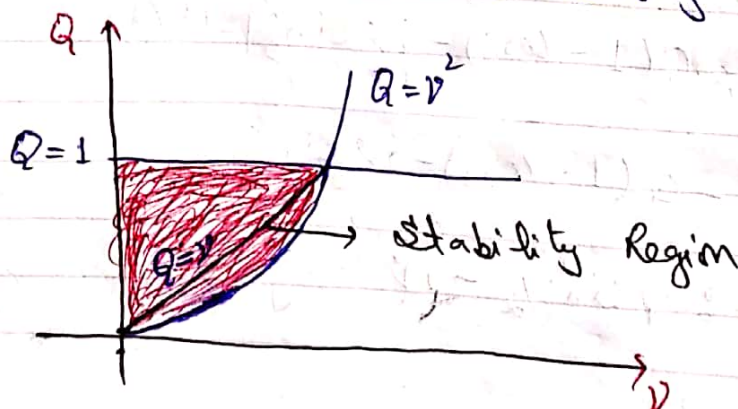 Q
Q = ν²
Q = 1
Q = ν
Stability Region
ν